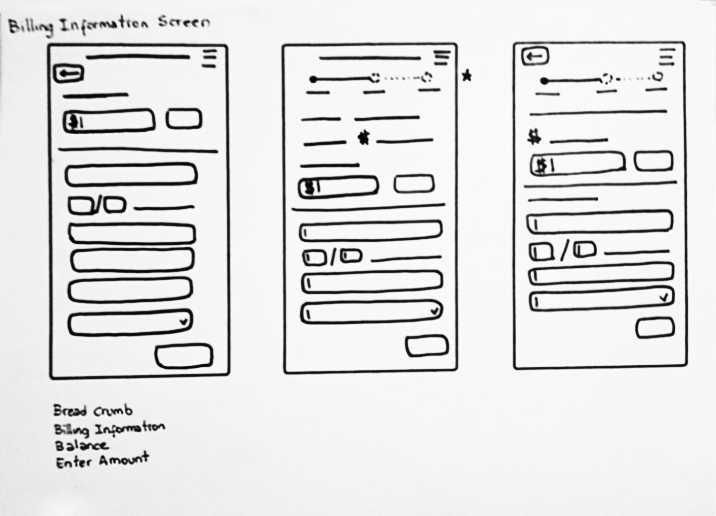 Billing Information Screen
$
$
$
$
$
Bread Crumb
Billing Information
Balance
Enter Amount